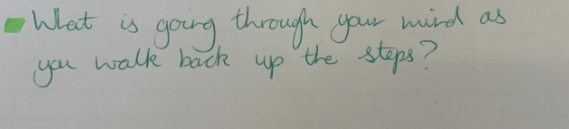 What is going through your mind as
you walk back up the steps?